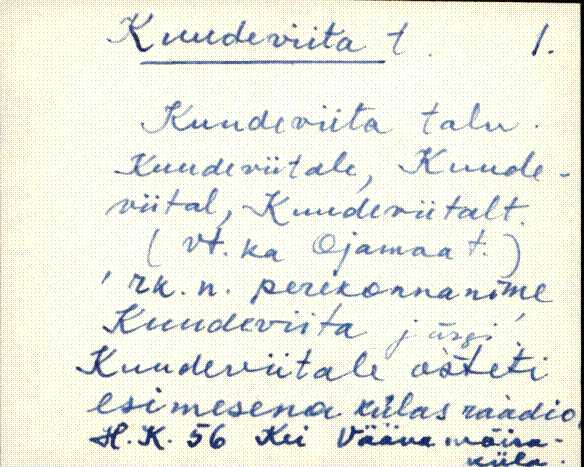 Kuudeviita t. 1.
Kuudeviita talu.
Kuudeviitale, Kuude-
viital, Kuudeviitalt.
(vt. ka Ojamaa t.)
rk. n. perekonnanime
Kuudeviita järgi.
Kuudeviitale osteti
esimesena külas raadio.
H.K. 56 Kei Vääna mõisa-
küla.